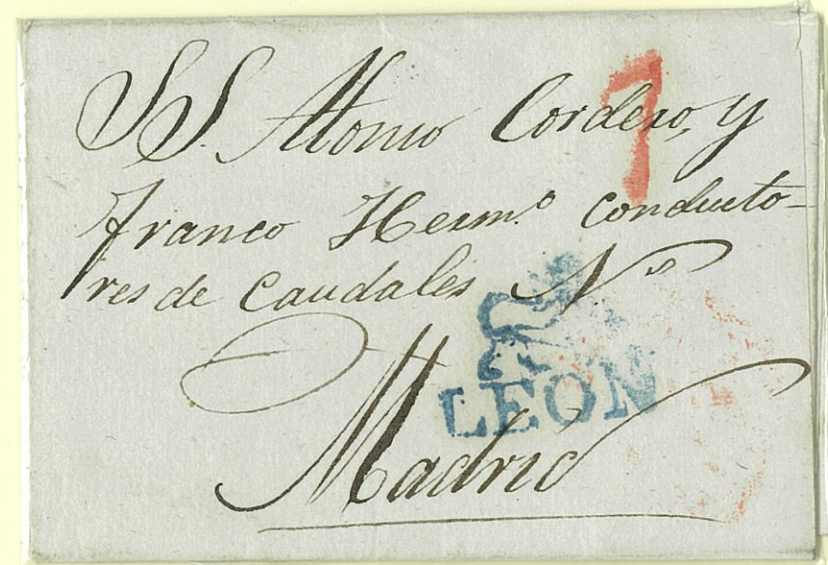 SS. Alonso Cordero, y
7
Franco Herm.º conducto-
res de Caudales N.º
LEON
Madrid